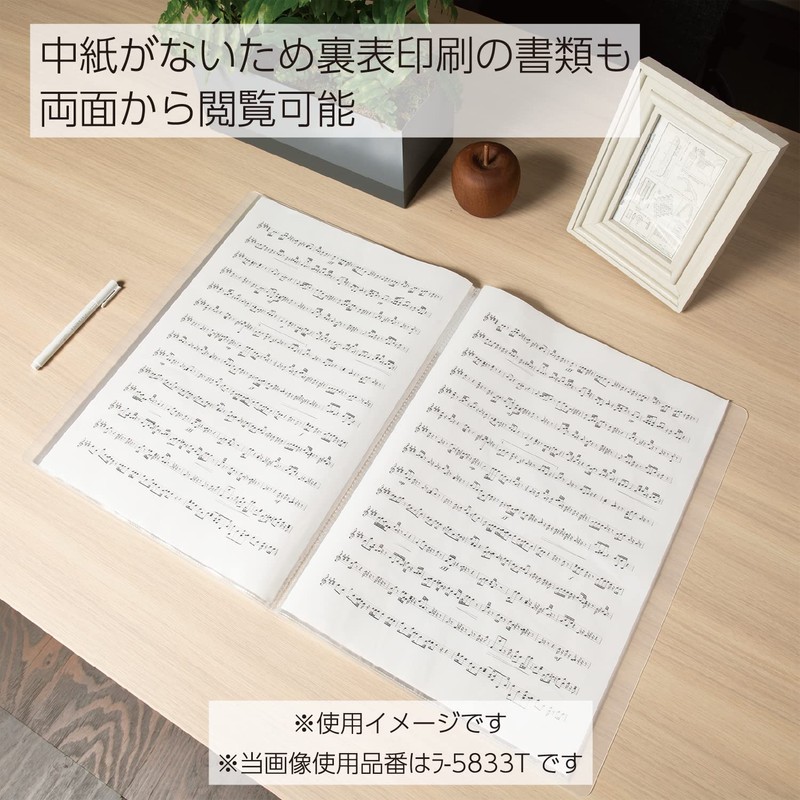 中紙がないため裏表印刷の書類も
両面から閲覧可能
※使用イメージです
※当画像使用品番はﾗ-5833Tです